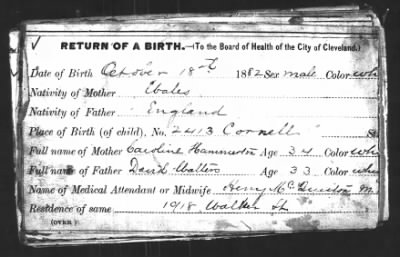 RETURN OF A BIRTH.—(To the Board of Health of the City of Cleveland.)
Date of Birth October 18th 1882 Sex male Color whi
Nativity of Mother Wales
Nativity of Father England
Place of Birth (of child), No. 2413 Cornell
Full name of Mother Caroline Age 34 Color whi
Full name of Father David Watters Age 33 Color whi
Name of Medical Attendant or Midwife Henry M
Residence of same 1918 Walker St
(OVER)